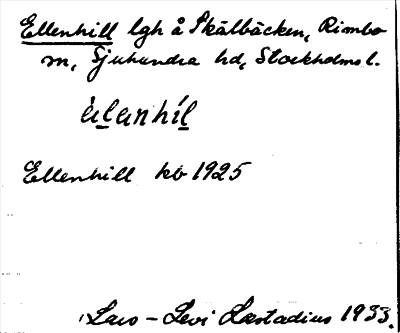 Ellenhill lgh å Skälbäcken, Rimbo
sn, Sjuhundra hd, Stockholms l.
ὰlanhíl
Ellenhill kb 1925
Lars-Levi Læstadius 1933.